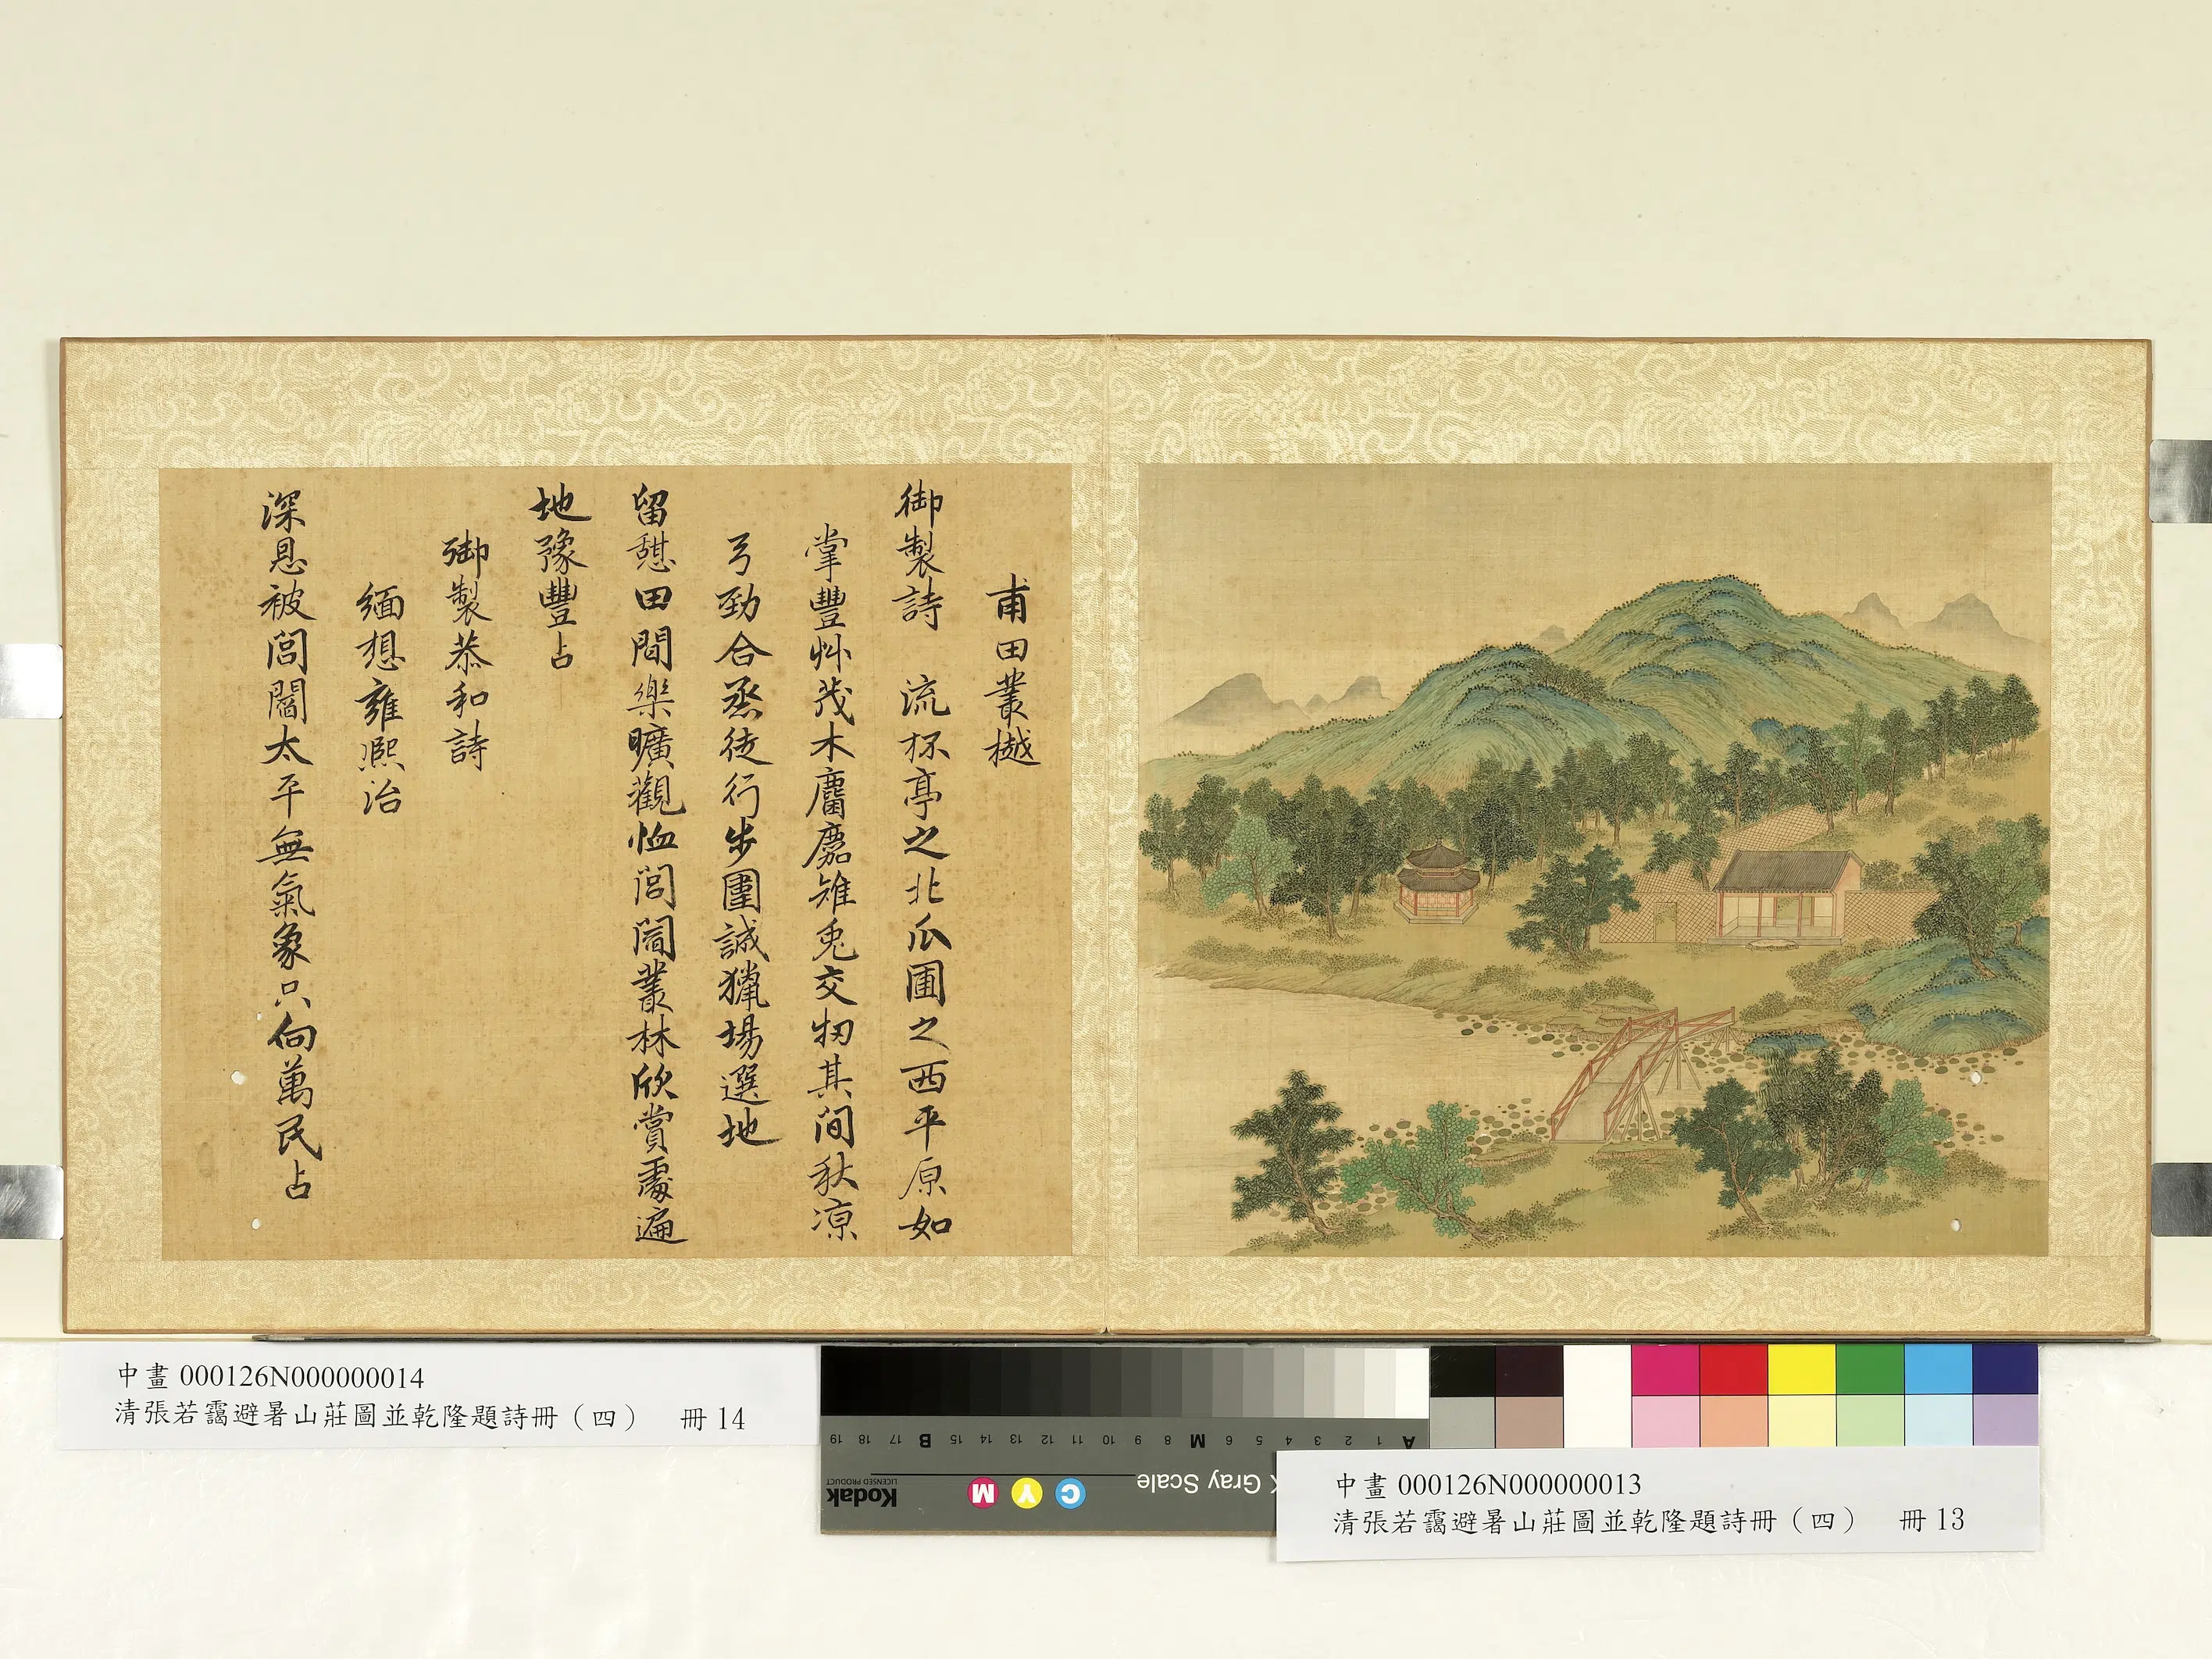 甫田叢樾
御製詩 流杯亭之北瓜圃之西平原如
掌豐艸茂木麕麚雉兎交牣其间秋涼
弓勁合烝徒行步圍誠獵塲選地
留憇田間樂曠觀恤閭閻叢林欣賞處遍
地豫豐占
御製恭和詩
緬想雍熙治
深恩被閭閻太平無氣象只向萬民占
中畫 000126N000000014
清張若靄避暑山莊圖並乾隆題詩冊（四） 冊 14
中畫 000126N000000013
清張若靄避暑山莊圖並乾隆題詩冊（四） 冊 13
A 1 2 3 4 5 6 M 8 9 10 11 12 13 14 15 B 17 18 19
Gray Scale
C Y M
Kodak
LICENSED PRODUCT